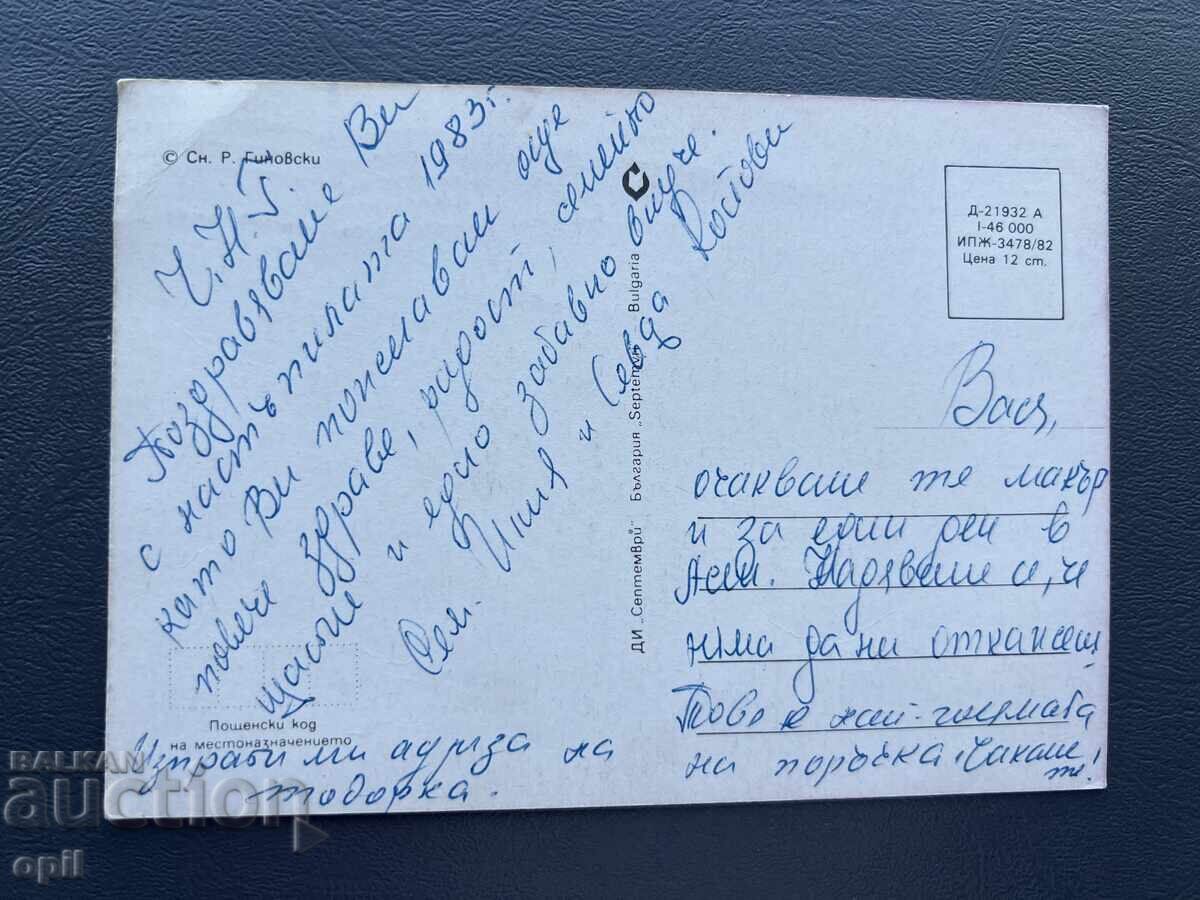 © Сн. Р. Гиновски
Ч.Н.Г.
Поздравяваме Ви
с настъпилата 1983 г.
като Ви пожелавам още
повече здраве, радост, семейно
щастие и едно забавно внуче.
Сем. Илия и Севда Костови
Пощенски код
на местоназначението
Изпрати ми адреса на
тодорка.
ДИ „Септември" България "Septemvri" Bulgaria
Д-21932 А
I-46 000
ИПЖ-3478/82
Цена 12 ст.
Вася,
очакваме те макър
и за един ден в
Надяваме се, че
няма да ни откажеш
Това е най-голямата
ни поръчка. Чакаме
те!
BALKAN
auction
opil